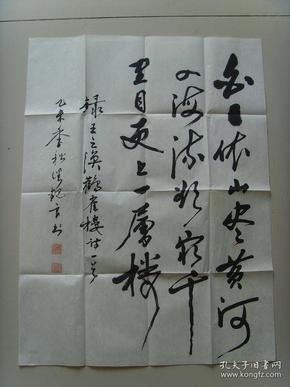 白日依山尽黄河
入海流欲穷千
里目更上一层楼
录王之涣鹳雀楼诗一首
乙未季秋
孔夫子旧书网